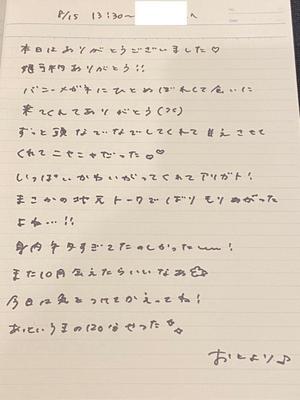 8/15 13:30〜 へ
本日はありがとうございました♡
ありがとう!!
バニーメガネにひとめぼれして会いに
来てくれてありがとう
ずっと頭なでなでしてくれて甘えさせて
くれてニヤニヤだった♡♡
いっぱいかわいがってくれてアリガト!
まさかの地元トークでばりもりあがった
よね…!!
身内ネタすぎてたのしかったーー!
また10月会えたらいいなあ
今日は気をつけてかえってね!
あっというまの120分やった
おとより♪